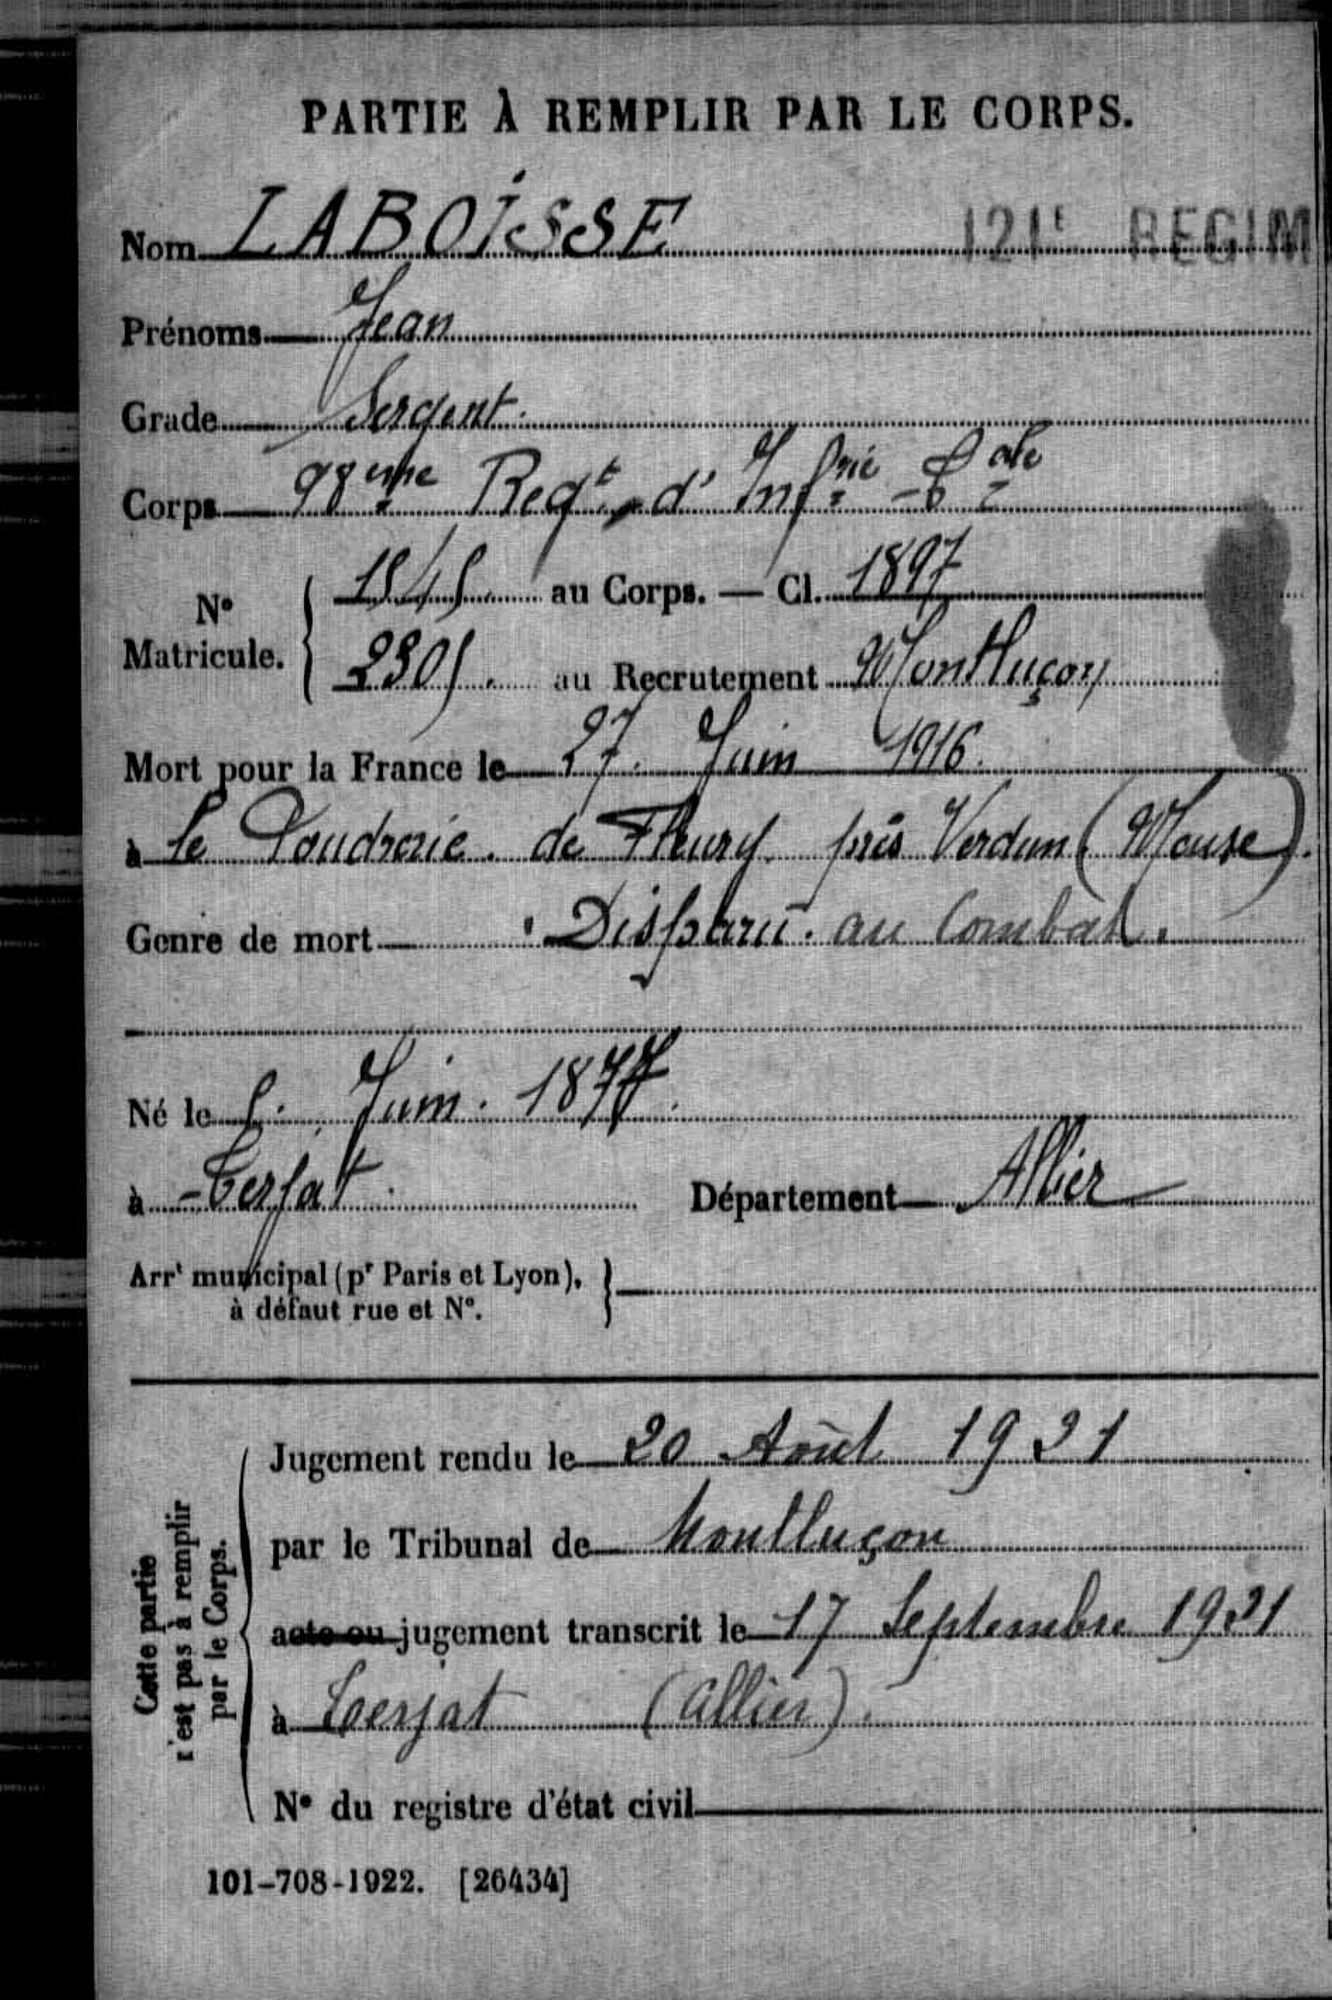 PARTIE À REMPLIR PAR LE CORPS.
Nom LABOISSE 121e REGIM
Prénoms Jean
Grade Sergent.
Corps 98eme Regt. d' Infrie
N° Matricule. 1545 au Corps. — Cl. 1897
2305. au Recrutement Montluçon
Mort pour la France le 27. Juin 1916.
à le Poudrerie. de Fleury. près Verdun (Meuse).
Genre de mort Disparu. au Combat.
Né le 5. Juin. 1877.
à Terjat. Département Allier
Arrt municipal (pr Paris et Lyon),
à défaut rue et N°.
Cette partie
n'est pas à remplir
par le Corps.
Jugement rendu le 20 Août 1921
par le Tribunal de Montluçon
acte ou jugement transcrit le 17 Septembre 1921
à Terjat (Allier).
N° du registre d'état civil
101-708-1922. [26434]